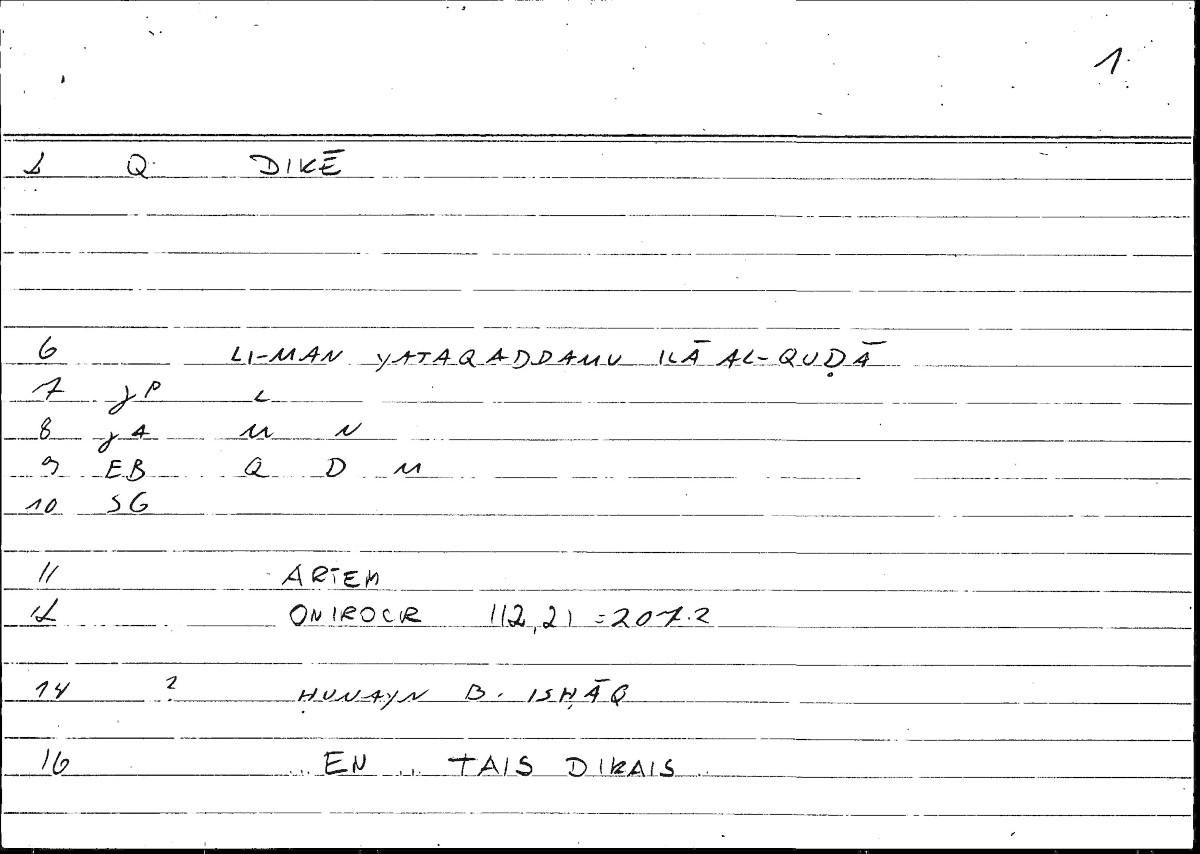 1
1 Q DIKĒ
6 LI-MAN YATAQADDAMU ILĀ AL-QUḌĀ
7 JP L
8 JA M N
9 EB Q D M
10 SG
11 ARTEM
12 ONIROCR 112,21 = 207.2
14 2 ḤUNAYN B. ISḤĀQ
16 EN TAIS DIKAIS